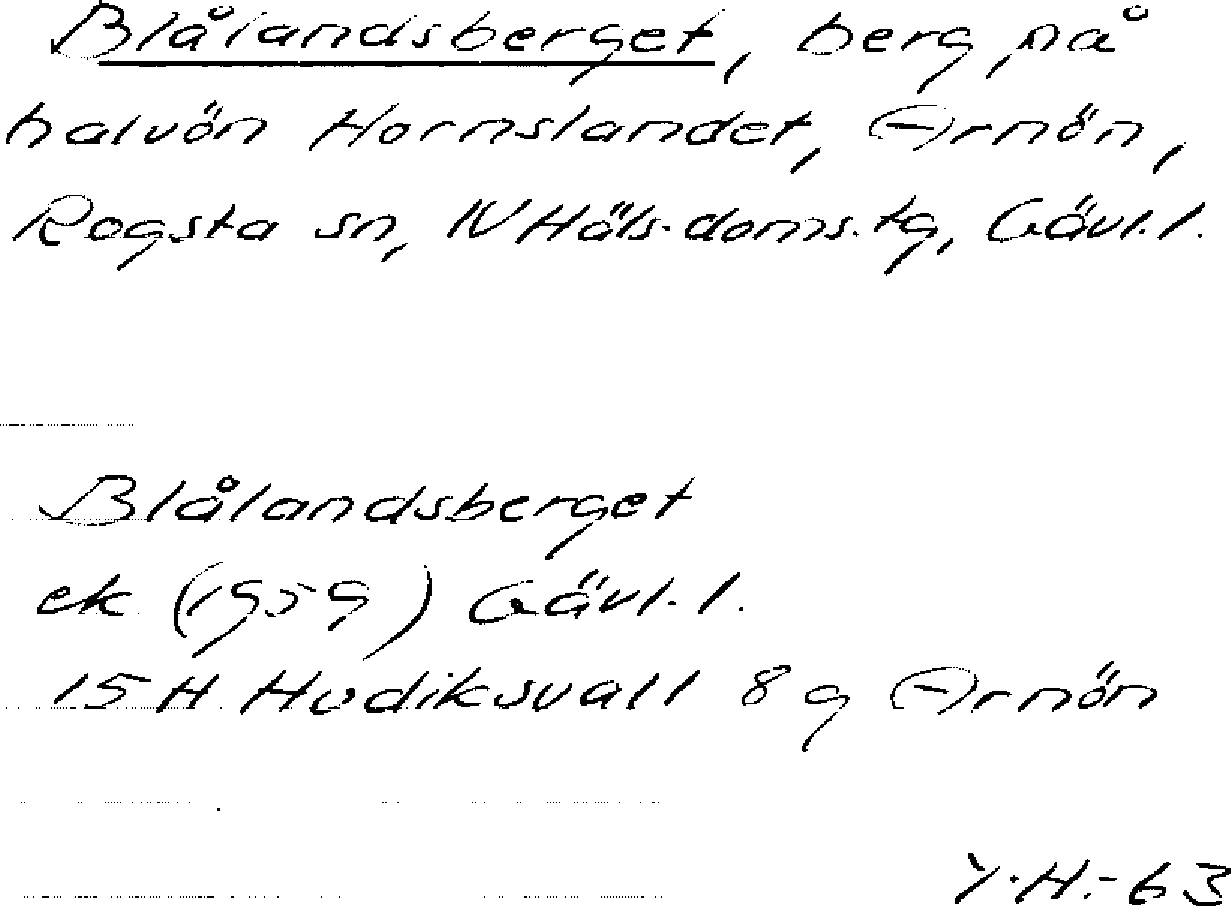 Blålandsberget, berg på
halvön Hornslandet, Arnön,
Rogsta sn, N Häls. doms. tg, Gävl. l.
Blålandsberget
ek (1959) Gävl. l.
15 H Hudiksvall 8 g Arnön
Y.H.-63